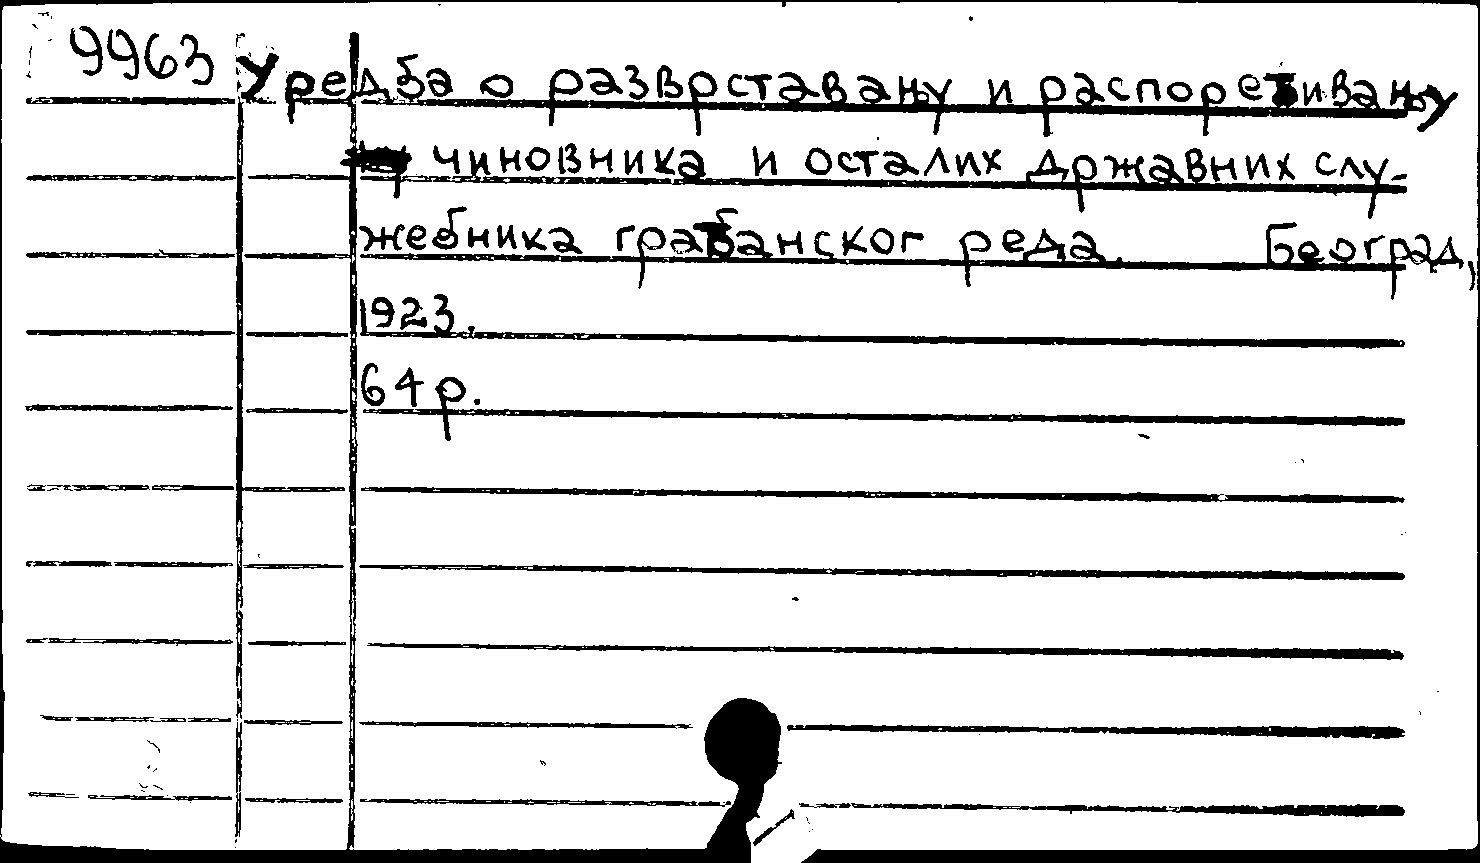 9963 Уредба о разврставању и распоређивању
чиновника и осталих државних слу-
жебника грађанског реда. Београд,
1923.
64 р.